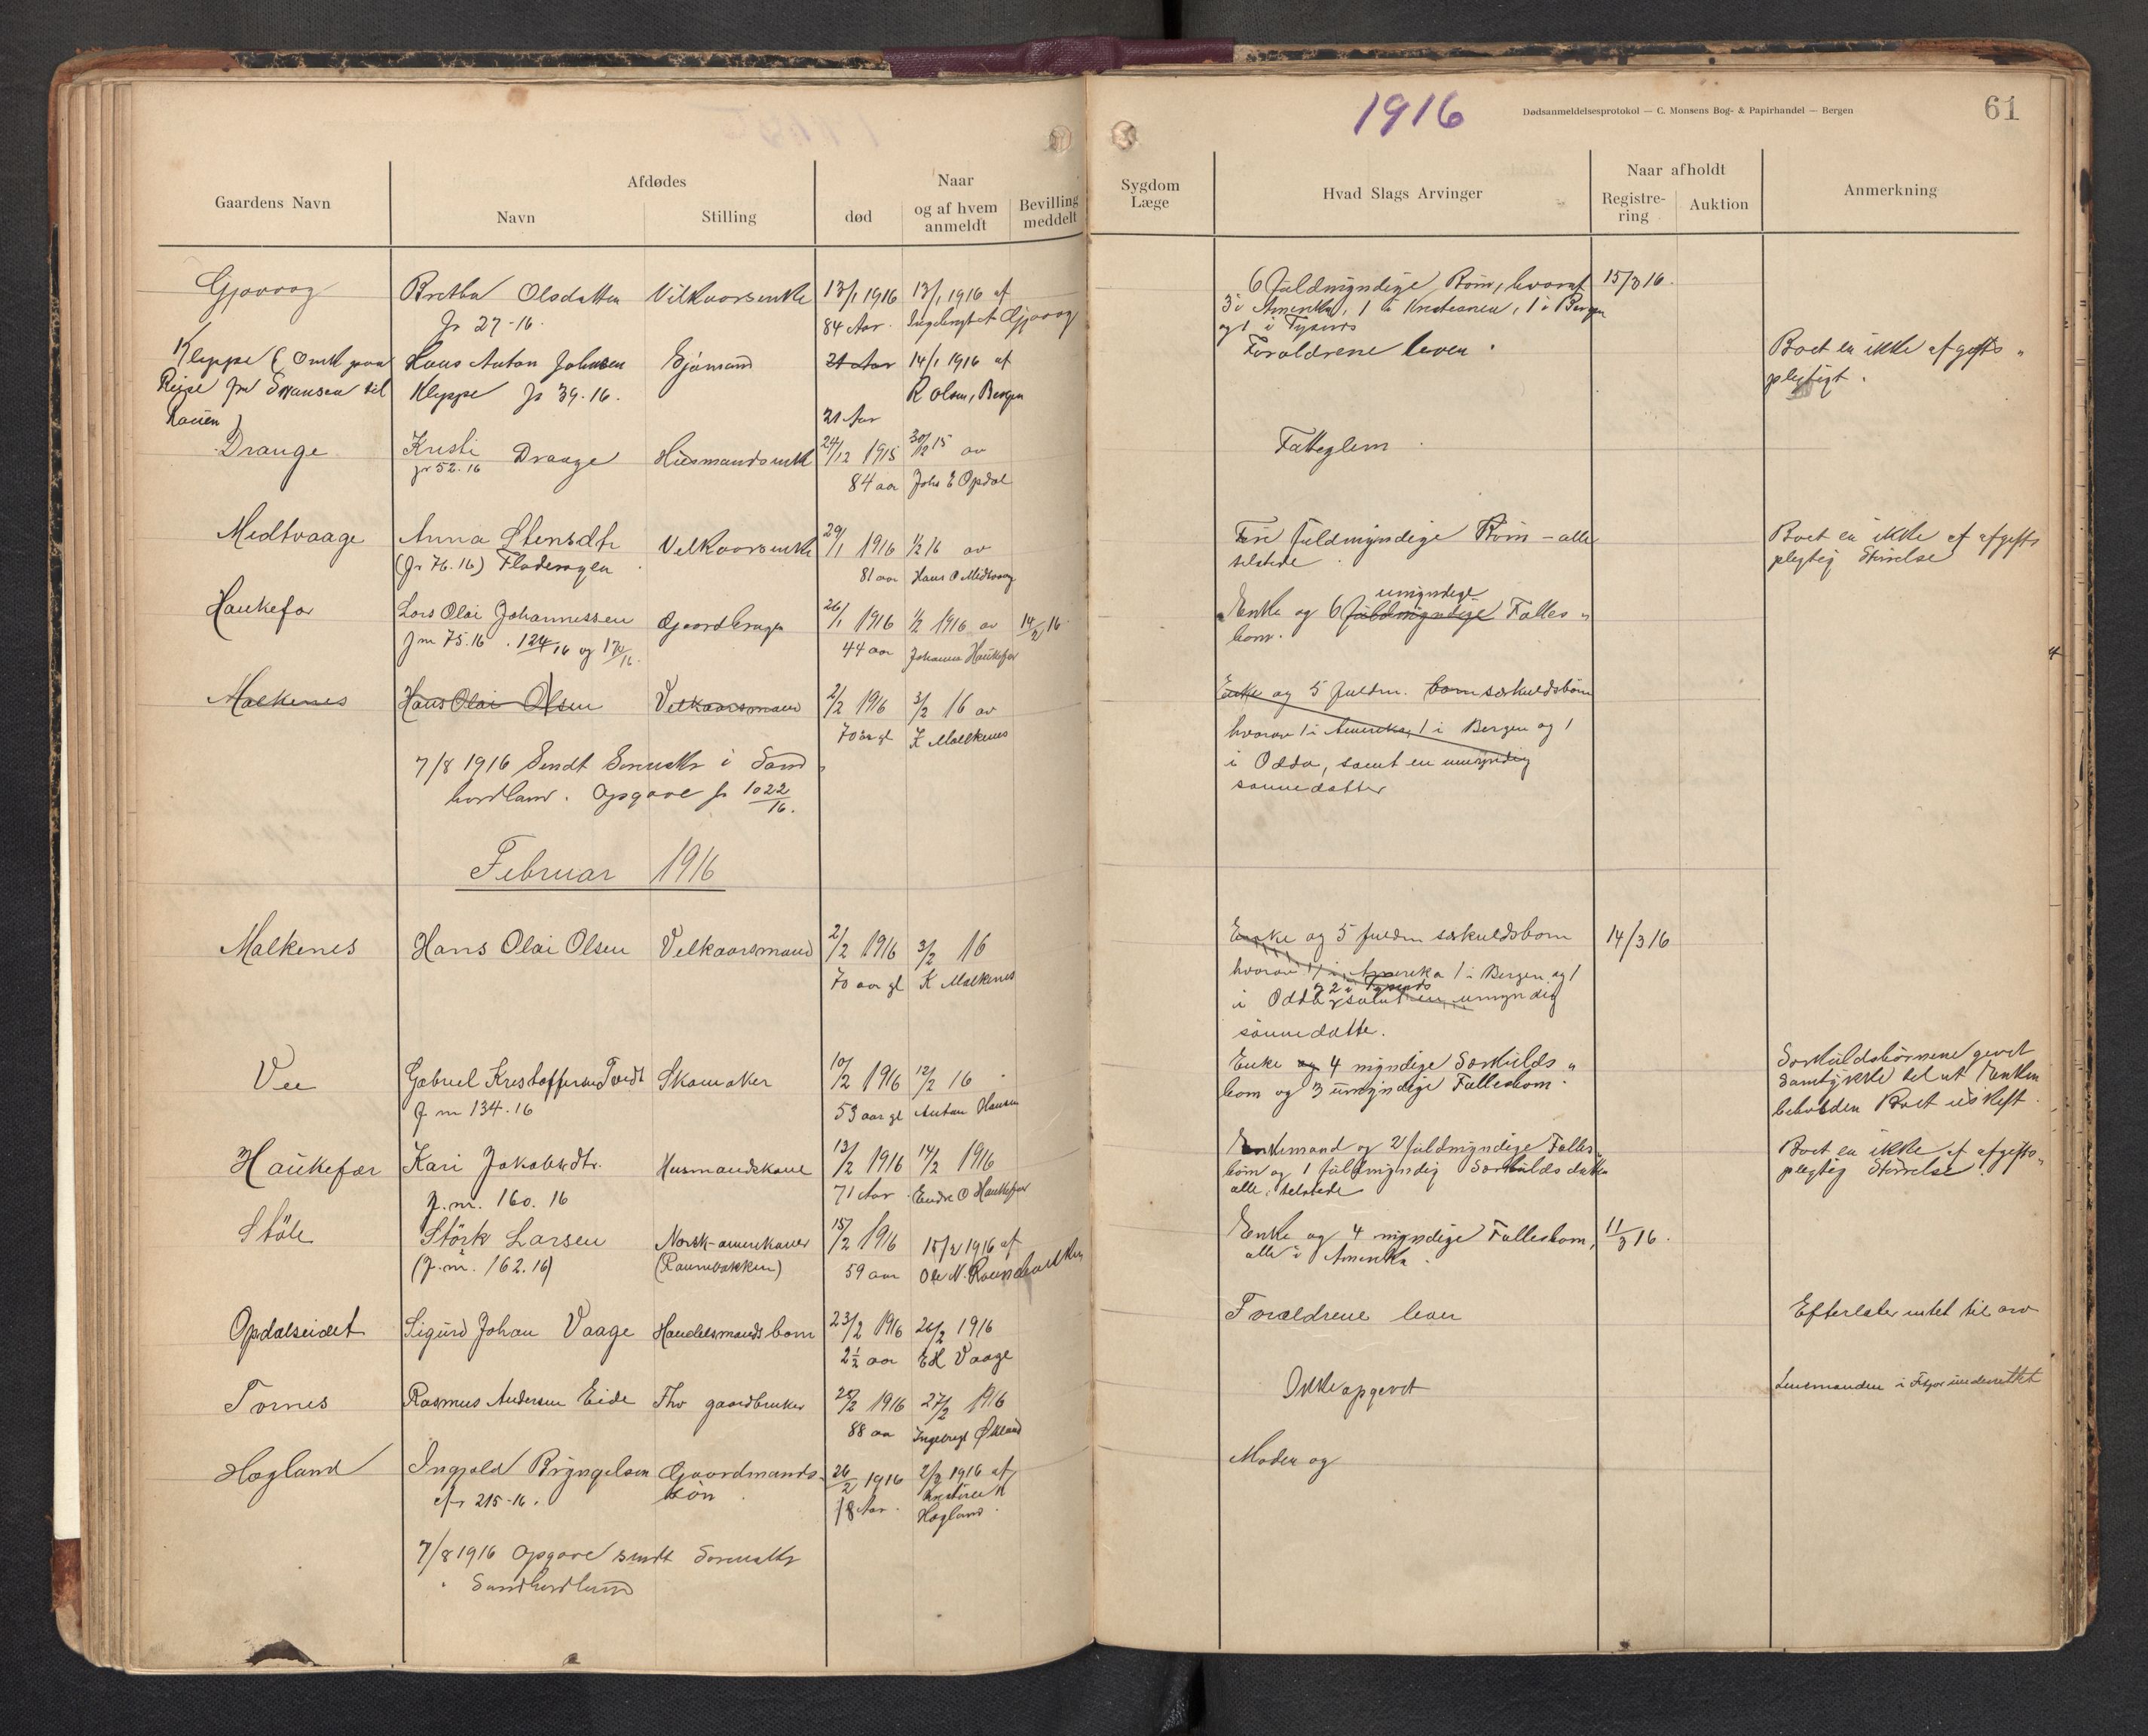 1916
Dødsanmeldelsesprotokol — C. Monsens Bog- & Papirhandel — Bergen
61
Gaardens Navn
Afdødes
Navn
Stilling
Naar
død
og af hvem anmeldt
Bevilling meddelt
Sygdom
Læge
Hvad Slags Arvinger
Naar afholdt
Registre-
ring
Auktion
Anmerkning
Gjøvaag Olsdatter Vilkaarsenke 13/1 1916 13/1 1916 af 6 fuldmyndige Børn, hvoraf 15/3 16.
Jr 27-16. 84 Aar. Gjøvaag 3 i Amerika, 1 i 1 i Bergen
og 1 i Tysnes
Kleppe (Omk paa Hans Anton Johnsen Sjømand 21 Aar 14/1 1916 af Forældrene lever. Boet er ikke afgifts-
Rejse fra Swansea til Kleppe Jr 39.16. R Olsen, Bergen pligtigt.
Rouen) 21 Aar
Drange Kristi Drange Husmandsenke 24/12 1915 30/12 15 av Fattiglem
Jr 52.16 84 aar Johs E Opdal
Medtvaage Anna Stensdtr Velkaarsenke 29/1 1916 1/2 16 av fuldmyndige Børn - alle Boet er ikke af afgifts
(Jr 76.16) 81 aar Hans O Medtvaag telstede pligtig Størrelse
Haukefær Lars Olai Johannessen Gaardbruger 26/1 1916 1/2 1916 av 14/2 16 Enke og 6 fuldmyndige umyndige Fælles-
Jnr 75.16. 124/16 og 170/16. 44 aar Johanna Haukefær børn.
Malkenes Hans Olai Olsen Velkaarsmand 2/2 1916 3/2 16 av Enke og 5 fuldm. børn særkuldsbørn
70 aar gl K Malkenes hvorav 1 i Amerika, 1 i Bergen og 1
7/8 1916 Sendt i Sønd i Odda, samt en umyndig
hordland. Opgave Jr 1022/16. sønnedatter
Februar 1916
Malkenes Hans Olai Olsen Velkaarsmand 2/2 1916 3/2 16 Enke og 5 fuldm særkuldsbørn 14/3 16
70 aar gl K Malkenes hvorav 1 i Amerika 1 i Bergen og 1
og 2 i Tysnes
i Odda, samt en umyndig
sønnedatter.
Vee Gabriel Kristoffersen Tveit Skomaker 10/2 1916 12/2 16 Enke og 4 myndige Særkulds- Særkuldsbørnene gevet
J.nr 134.16 53 aar gl Anton Hansen børn og 3 umyndige Fællesbørn. Samtykke til at Enken
beholder Boet uskift.
Haukefær Kari Jakobsdtr. Husmandskone 13/2 1916 14/2 1916 Enkemand og 2 fuldmyndige Fælles- Boet er ikke af afgifts-
J.nr. 160.16 71 Aar. Endre O Haukefær børn og 1 fuldmyndig Særkuldsdatter pligtig Størrelse.
alle telstede
Støle Størk Larsen Norsk-amerikaner 15/2 1916 15/2 1916 af Enke og 4 myndige Fællesbørn, 11/3 16.
(J.nr. 162.16) 59 aar Ole N. alle i Amerika.
Opdalseidet Sigurd Johan Vaage Handelsmands barn 23/2 1916 26/2 1916 Forældrene lever Efterlater intet til arv
2½ aar EH Vaage
Tornes Rasmus Andersen Eide Fhv gaardbruker 25/2 1916 27/2 1916 Ikke opgevet Lensmanden i Fitjar underrettet
88 aar Ingebregt Økland
Hogland Ingvald Bryngelsen Gaardmands- 26/2 1916 2/3 1916 af Moder og
Jr 215-16. søn. 18 Aar. Hogland.
7/8 1916 Opgave sendt
Søndhordland